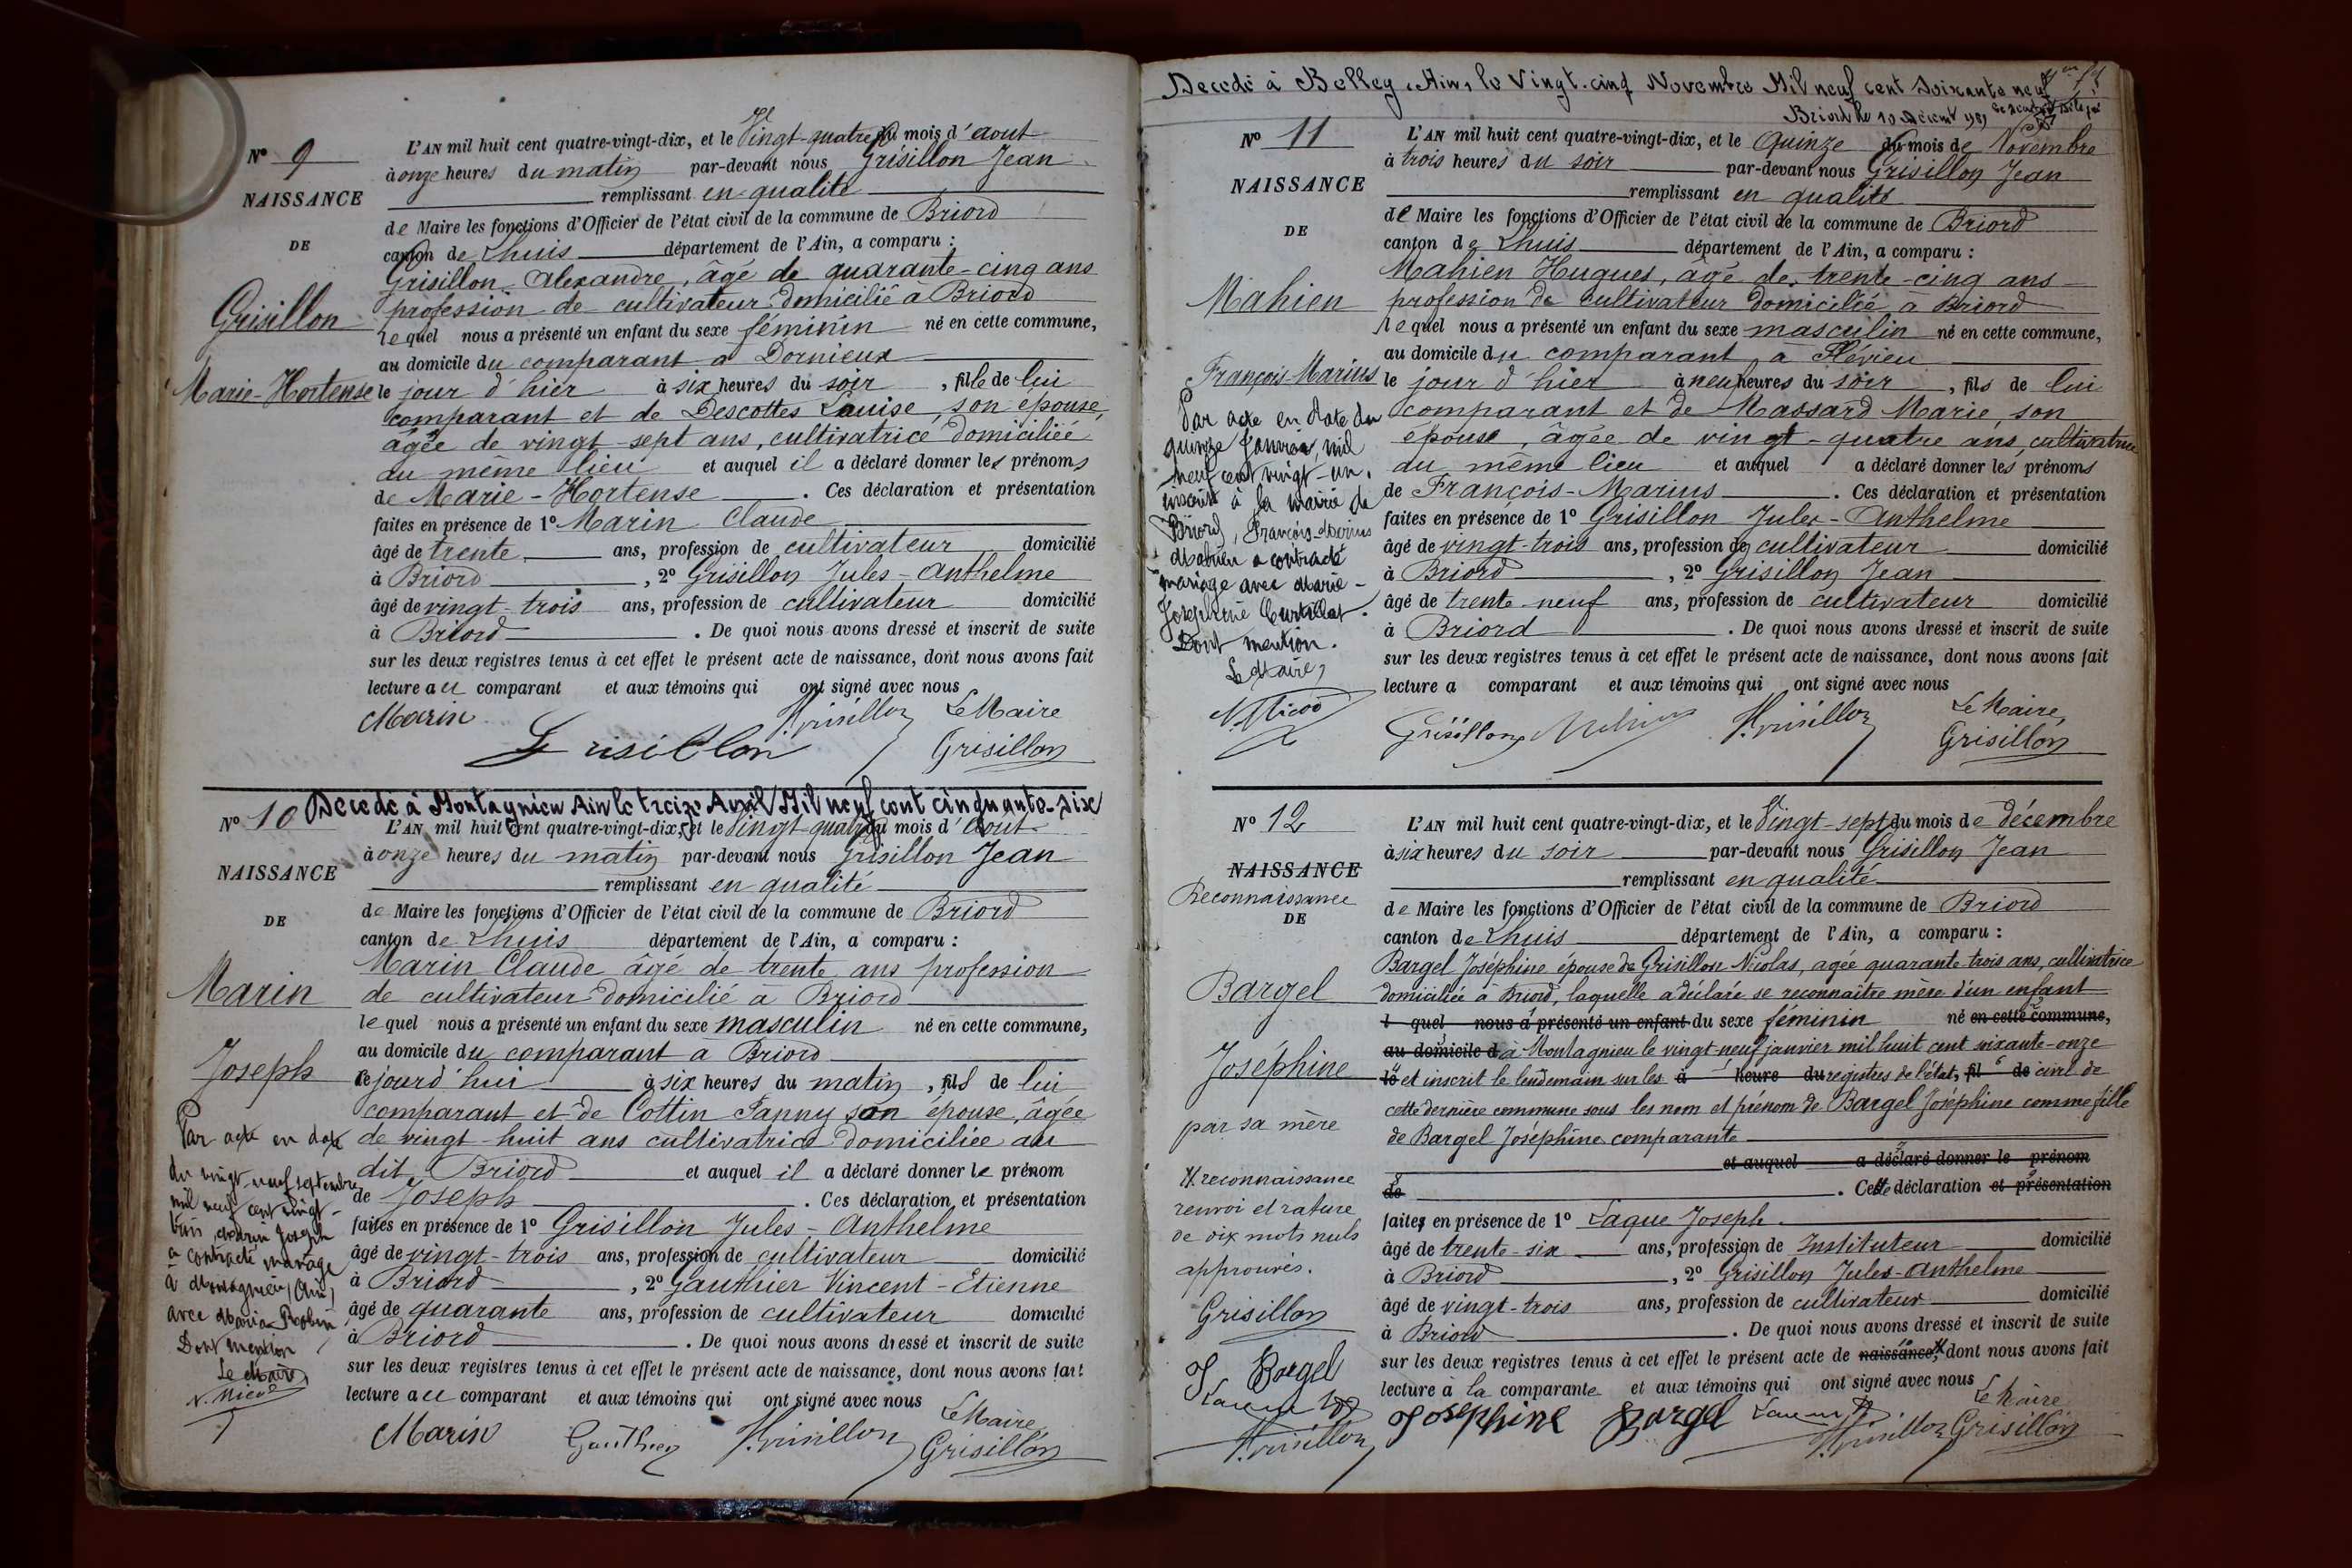 N° 9
NAISSANCE
DE
Grisillon
Marie-Hortense
L'AN mil huit cent quatre-vingt-dix, et le Vingt-quatre du mois d'aout
à onze heures du matin par-devant nous Grisillon Jean
remplissant en qualité
de Maire les fonctions d'Officier de l'état civil de la commune de Briord
canton de Lhuis département de l'Ain, a comparu :
Grisillon Alexandre, âgé de quarante-cinq ans
profession de cultivateur domicilié à Briord
lequel nous a présenté un enfant du sexe féminin né en cette commune,
au domicile du comparant à Dornieux
le jour d'hier à six heures du soir, fille de lui
comparant et de Descottes Louise, son épouse,
âgée de vingt-sept ans, cultivatrice domiciliée
au même lieu et auquel il a déclaré donner les prénoms
de Marie-Hortense. Ces déclaration et présentation
faites en présence de 1° Marin Claude
âgé de trente ans, profession de cultivateur domicilié
à Briord, 2° Grisillon Jules-Anthelme
âgé de vingt-trois ans, profession de cultivateur domicilié
à Briord. De quoi nous avons dressé et inscrit de suite
sur les deux registres tenus à cet effet le présent acte de naissance, dont nous avons fait
lecture au comparant et aux témoins qui ont signé avec nous
Marin Grisillon Le Maire
Grisillon Grisillon
N° 10 Décédé à Montagnieu Ain le treize Avril Mil neuf cent cinquante-six
NAISSANCE
DE
Marin
Joseph
Par acte en date
du vingt-neuf septembre
mil neuf cent vingt-
trois, Marin Joseph
a contracté mariage
à Montagnieu (Ain)
avec Maria Robin
Dont mention
Le Maire,
L'AN mil huit cent quatre-vingt-dix, et le Vingt-quatre du mois d'Aout
à onze heures du matin par-devant nous Grisillon Jean
remplissant en qualité
de Maire les fonctions d'Officier de l'état civil de la commune de Briord
canton de Lhuis département de l'Ain, a comparu :
Marin Claude âgé de trente ans profession
de cultivateur domicilié à Briord
lequel nous a présenté un enfant du sexe masculin né en cette commune,
au domicile du comparant à Briord
ce jourd'hui à six heures du matin, fils de lui
comparant et de Cottin Fanny son épouse, âgée
de vingt-huit ans cultivatrice domiciliée au
dit Briord et auquel il a déclaré donner le prénom
de Joseph. Ces déclaration et présentation
faites en présence de 1° Grisillon Jules-Anthelme
âgé de vingt-trois ans, profession de cultivateur domicilié
à Briord, 2° Gauthier Vincent-Etienne
âgé de quarante ans, profession de cultivateur domicilié
à Briord. De quoi nous avons dressé et inscrit de suite
sur les deux registres tenus à cet effet le présent acte de naissance, dont nous avons fait
lecture au comparant et aux témoins qui ont signé avec nous
Marin Gauthier Grisillon Le Maire
Grisillon
Decedé à Belley, Ain, le Vingt-cinq Novembre Mil neuf cent Soixante neuf
Briord le 10
N° 11
NAISSANCE
DE
Mahien
François Marius
Par acte en date du
quinze Janvier mil
neuf cent vingt-un,
inscrit à la mairie de
Briord, François-Marius
Mahien a contracté
mariage avec Marie-
Joséphine Curtillat.
Dont mention.
Le Maire,
L'AN mil huit cent quatre-vingt-dix, et le Quinze du mois de Novembre
à trois heures du soir par-devant nous Grisillon Jean
remplissant en qualité
de Maire les fonctions d'Officier de l'état civil de la commune de Briord
canton de Lhuis département de l'Ain, a comparu :
Mahien Hugues, âgé de trente-cinq ans
profession de cultivateur domicilié à Briord
lequel nous a présenté un enfant du sexe masculin né en cette commune,
au domicile du comparant, à Flévieu
le jour d'hier à neuf heures du soir, fils de lui
comparant et de Massard Marie, son
épouse, âgée de vingt-quatre ans, cultivatrice
au même lieu et auquel a déclaré donner les prénoms
de François-Marius. Ces déclaration et présentation
faites en présence de 1° Grisillon Jules-Anthelme
âgé de vingt-trois ans, profession de cultivateur domicilié
à Briord, 2° Grisillon Jean
âgé de trente-neuf ans, profession de cultivateur domicilié
à Briord. De quoi nous avons dressé et inscrit de suite
sur les deux registres tenus à cet effet le présent acte de naissance, dont nous avons fait
lecture a comparant et aux témoins qui ont signé avec nous
Le Maire,
Grisillon Mahien Grisillon Grisillon
N° 12
NAISSANCE
Reconnaissance
DE
Bargel
Joséphine
par sa mère
reconnaissance
renvoi et rature
de dix mots nuls
approuvés.
Grisillon
J Bargel
Grisillon
L'AN mil huit cent quatre-vingt-dix, et le Vingt-sept du mois de décembre
à six heures du soir par-devant nous Grisillon Jean
remplissant en qualité
de Maire les fonctions d'Officier de l'état civil de la commune de Briord
canton de Lhuis département de l'Ain, a comparu :
Bargel Joséphine épouse de Grisillon Nicolas, agée quarante trois ans, cultivatrice
domiciliée à Briord, laquelle a déclaré se reconnaître mère d'un enfant
l quel nous a présenté un enfant du sexe féminin né en cette commune,
au domicile d à Montagnieu le vingt-neuf janvier mil huit cent soixante-onze
le et inscrit le lendemain sur les à heure du registres de l'état, fil de civil de
cette dernière commune sous les nom et prénom de Bargel Joséphine comme fille
de Bargel Joséphine comparante
et auquel a déclaré donner le prénom
de. Cette déclaration et présentation
faites en présence de 1° Laque Joseph
âgé de trente-six ans, profession de Instituteur domicilié
à Briord, 2° Grisillon Jules-Anthelme
âgé de vingt-trois ans, profession de cultivateur domicilié
à Briord. De quoi nous avons dressé et inscrit de suite
sur les deux registres tenus à cet effet le présent acte de naissance, dont nous avons fait
lecture à la comparante et aux témoins qui ont signé avec nous
Le Maire
Josephine Bargel Grisillon Grisillon